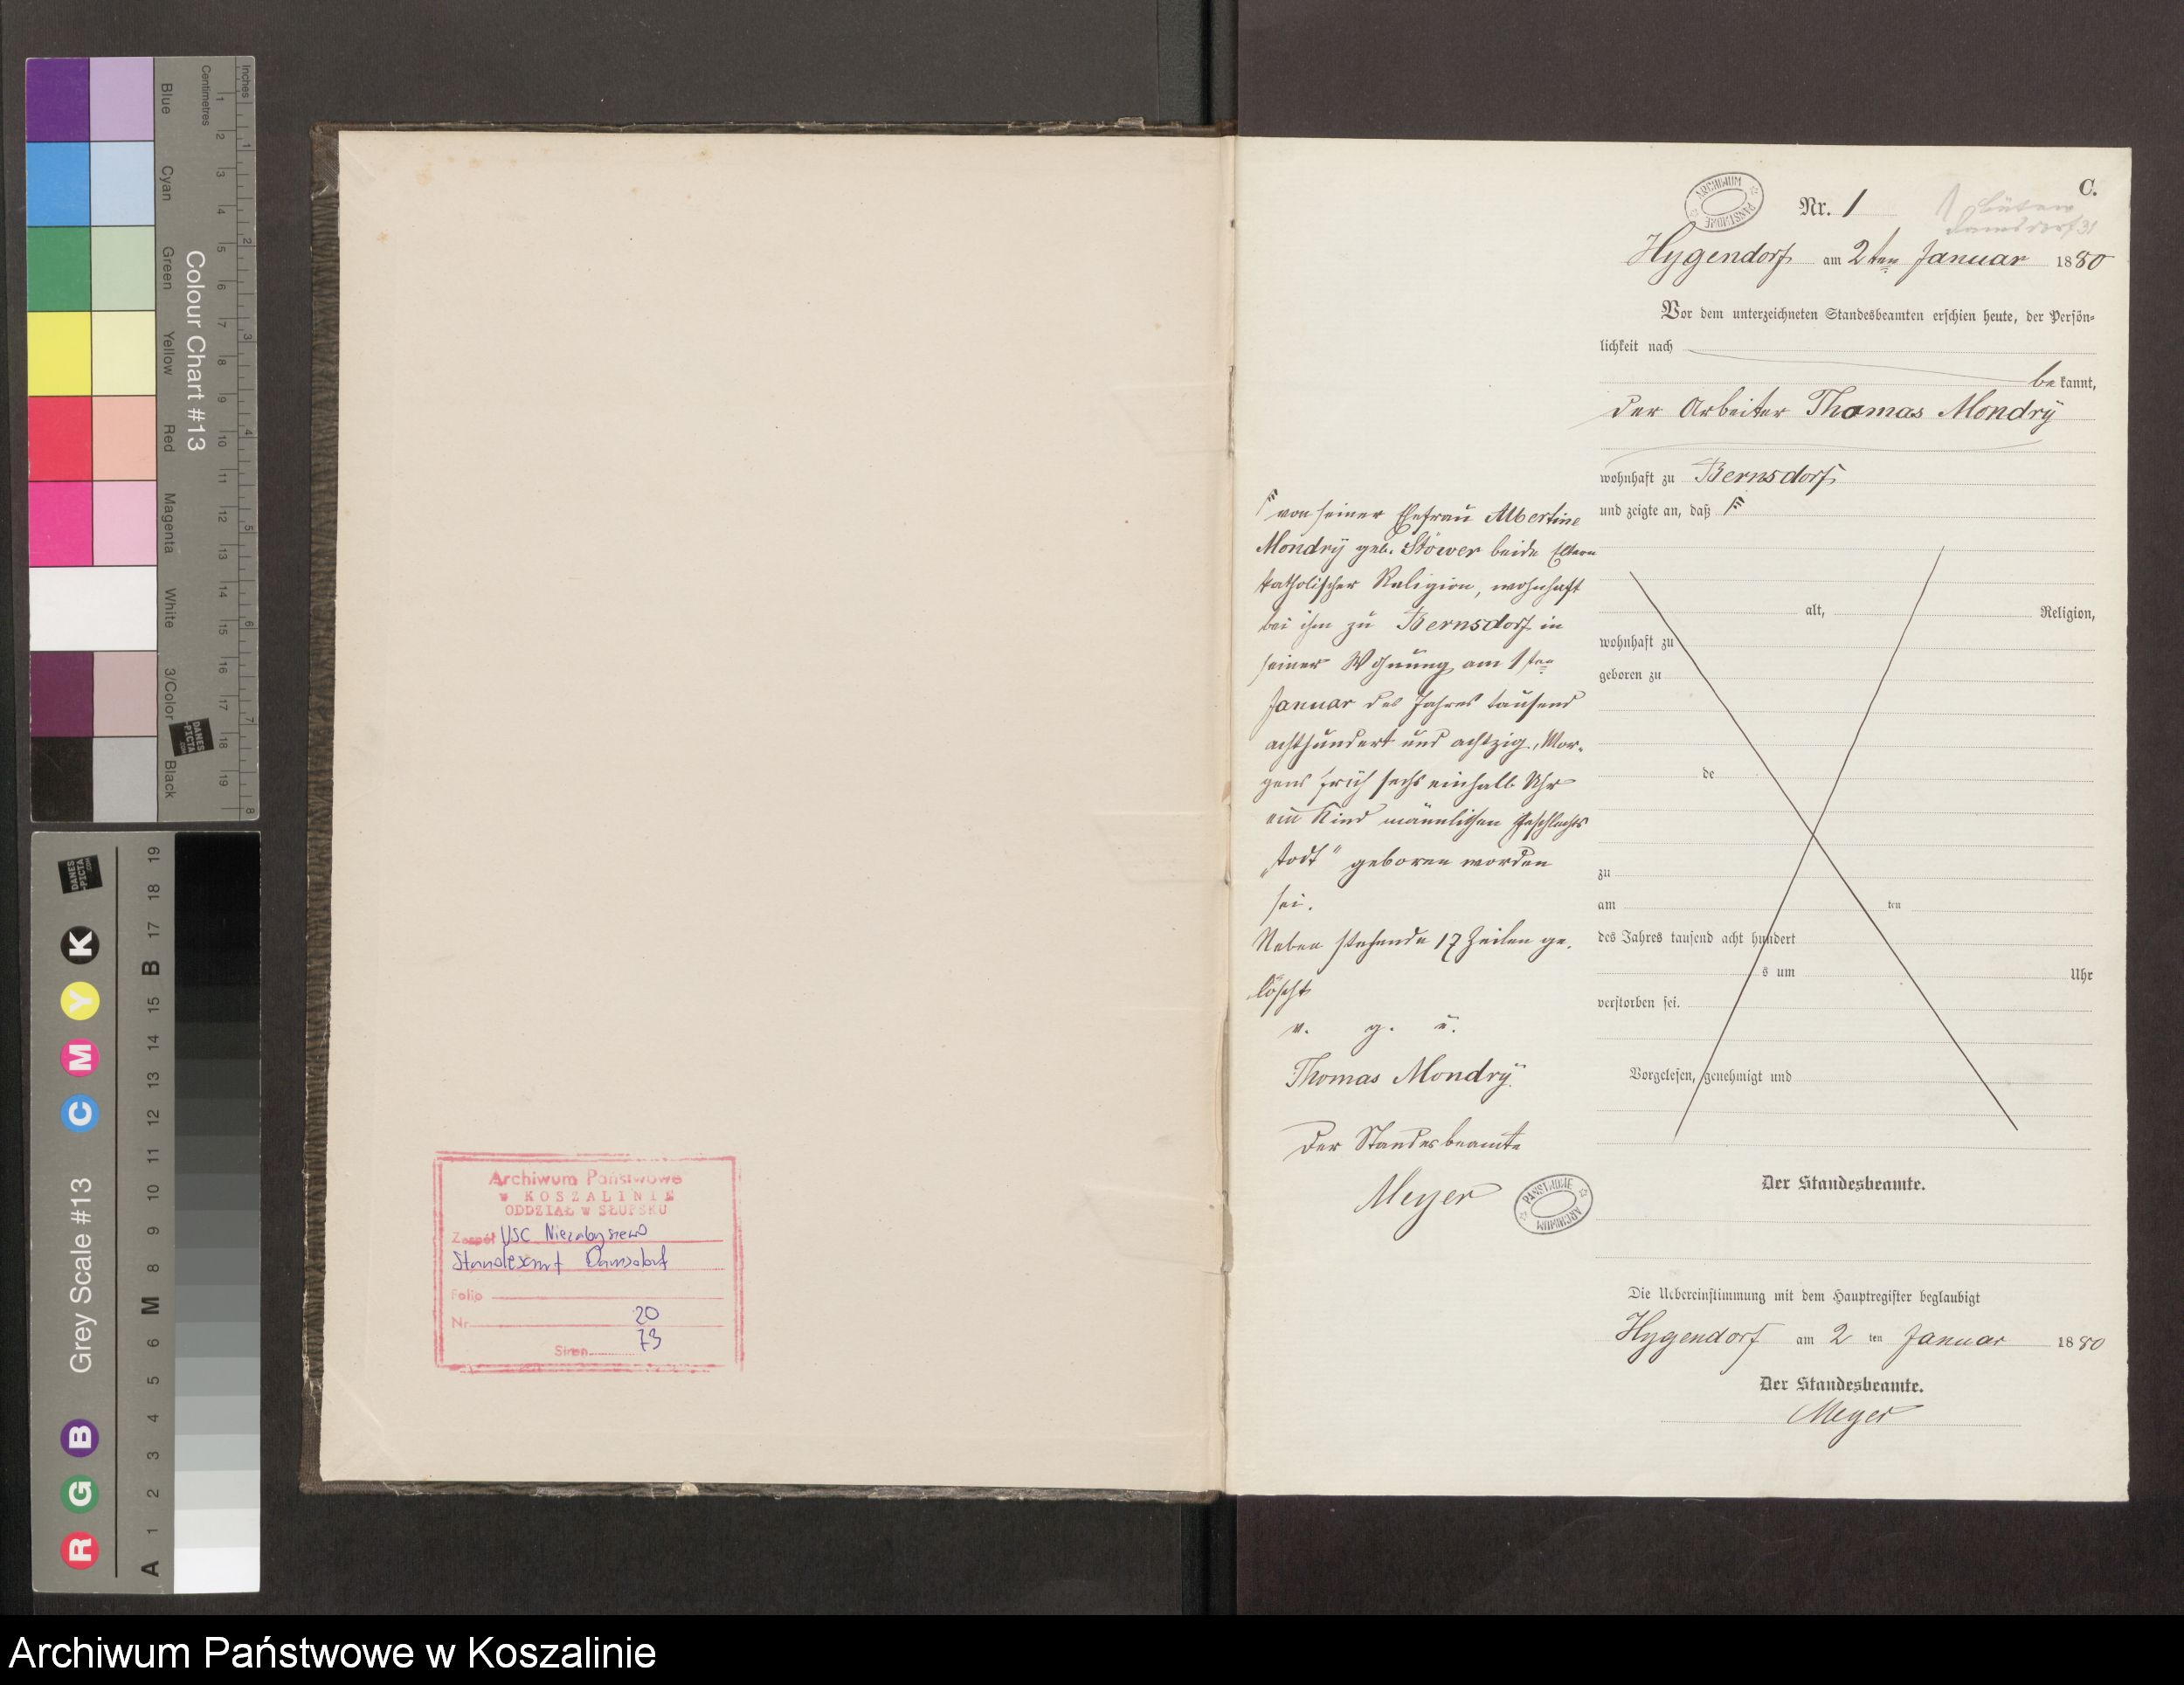 Inches
Centimetres
1 2 3 4 5 6 7 8 9 10 11 12 13 14 15 16 17 18 19
1 2 3 4 5 6 7 8
Colour Chart #13
Blue
Cyan
Green
Yellow
Red
Magenta
White
3/Color
Black
DANES
-PICTA
.COM
Grey Scale #13
R G B C M Y K
A 1 2 3 4 5 6 M 8 9 10 11 12 13 14 15 B 17 18 19
DANES
-PICTA
.COM
Archiwum Państwowe
w KOSZALINIE
ODDZIAŁ w SŁUPSKU
Zespół USC Niezabyszewo
Standesamt Damsdorf
Folio
Nr. 20
73
Stron
C.
ARCHIWUM PAŃSTWOWE
Nr. 1
1 Bütow
Damsdorf 31
Hygendorf am 2ten Januar 1880
Vor dem unterzeichneten Standesbeamten erschien heute, der Persön-
lichkeit nach
be kannt,
der Arbeiter Thomas Mondrÿ
wohnhaft zu Bernsdorf
und zeigte an, daß F
alt, Religion,
wohnhaft zu
geboren zu
de
zu
am ten
des Jahres tausend acht hundert
s um Uhr
verstorben sei.
Vorgelesen, genehmigt und
Der Standesbeamte.
F von seiner Ehefrau Albertine
Mondrÿ geb. Stöwer beide Eltern
katholischer Religion, wohnhaft
bei ihm zu Bernsdorf in
seiner Wohnung am 1sten
Januar des Jahres tausend
achthundert und achtzig, Mor-
gens früh sechs einhalb Uhr
ein Kind männlichen Geschlechts
„todt" geboren worden
sei.
Neben stehende 17 Zeilen ge-
löscht
v. g. u.
Thomas Mondrÿ
Der Standesbeamte
Meyer
PAŃSTWOWE ARCHIWUM
Die Uebereinstimmung mit dem Hauptregister beglaubigt
Hygendorf am 2 ten Januar 1880
Der Standesbeamte.
Meyer
Archiwum Państwowe w Koszalinie